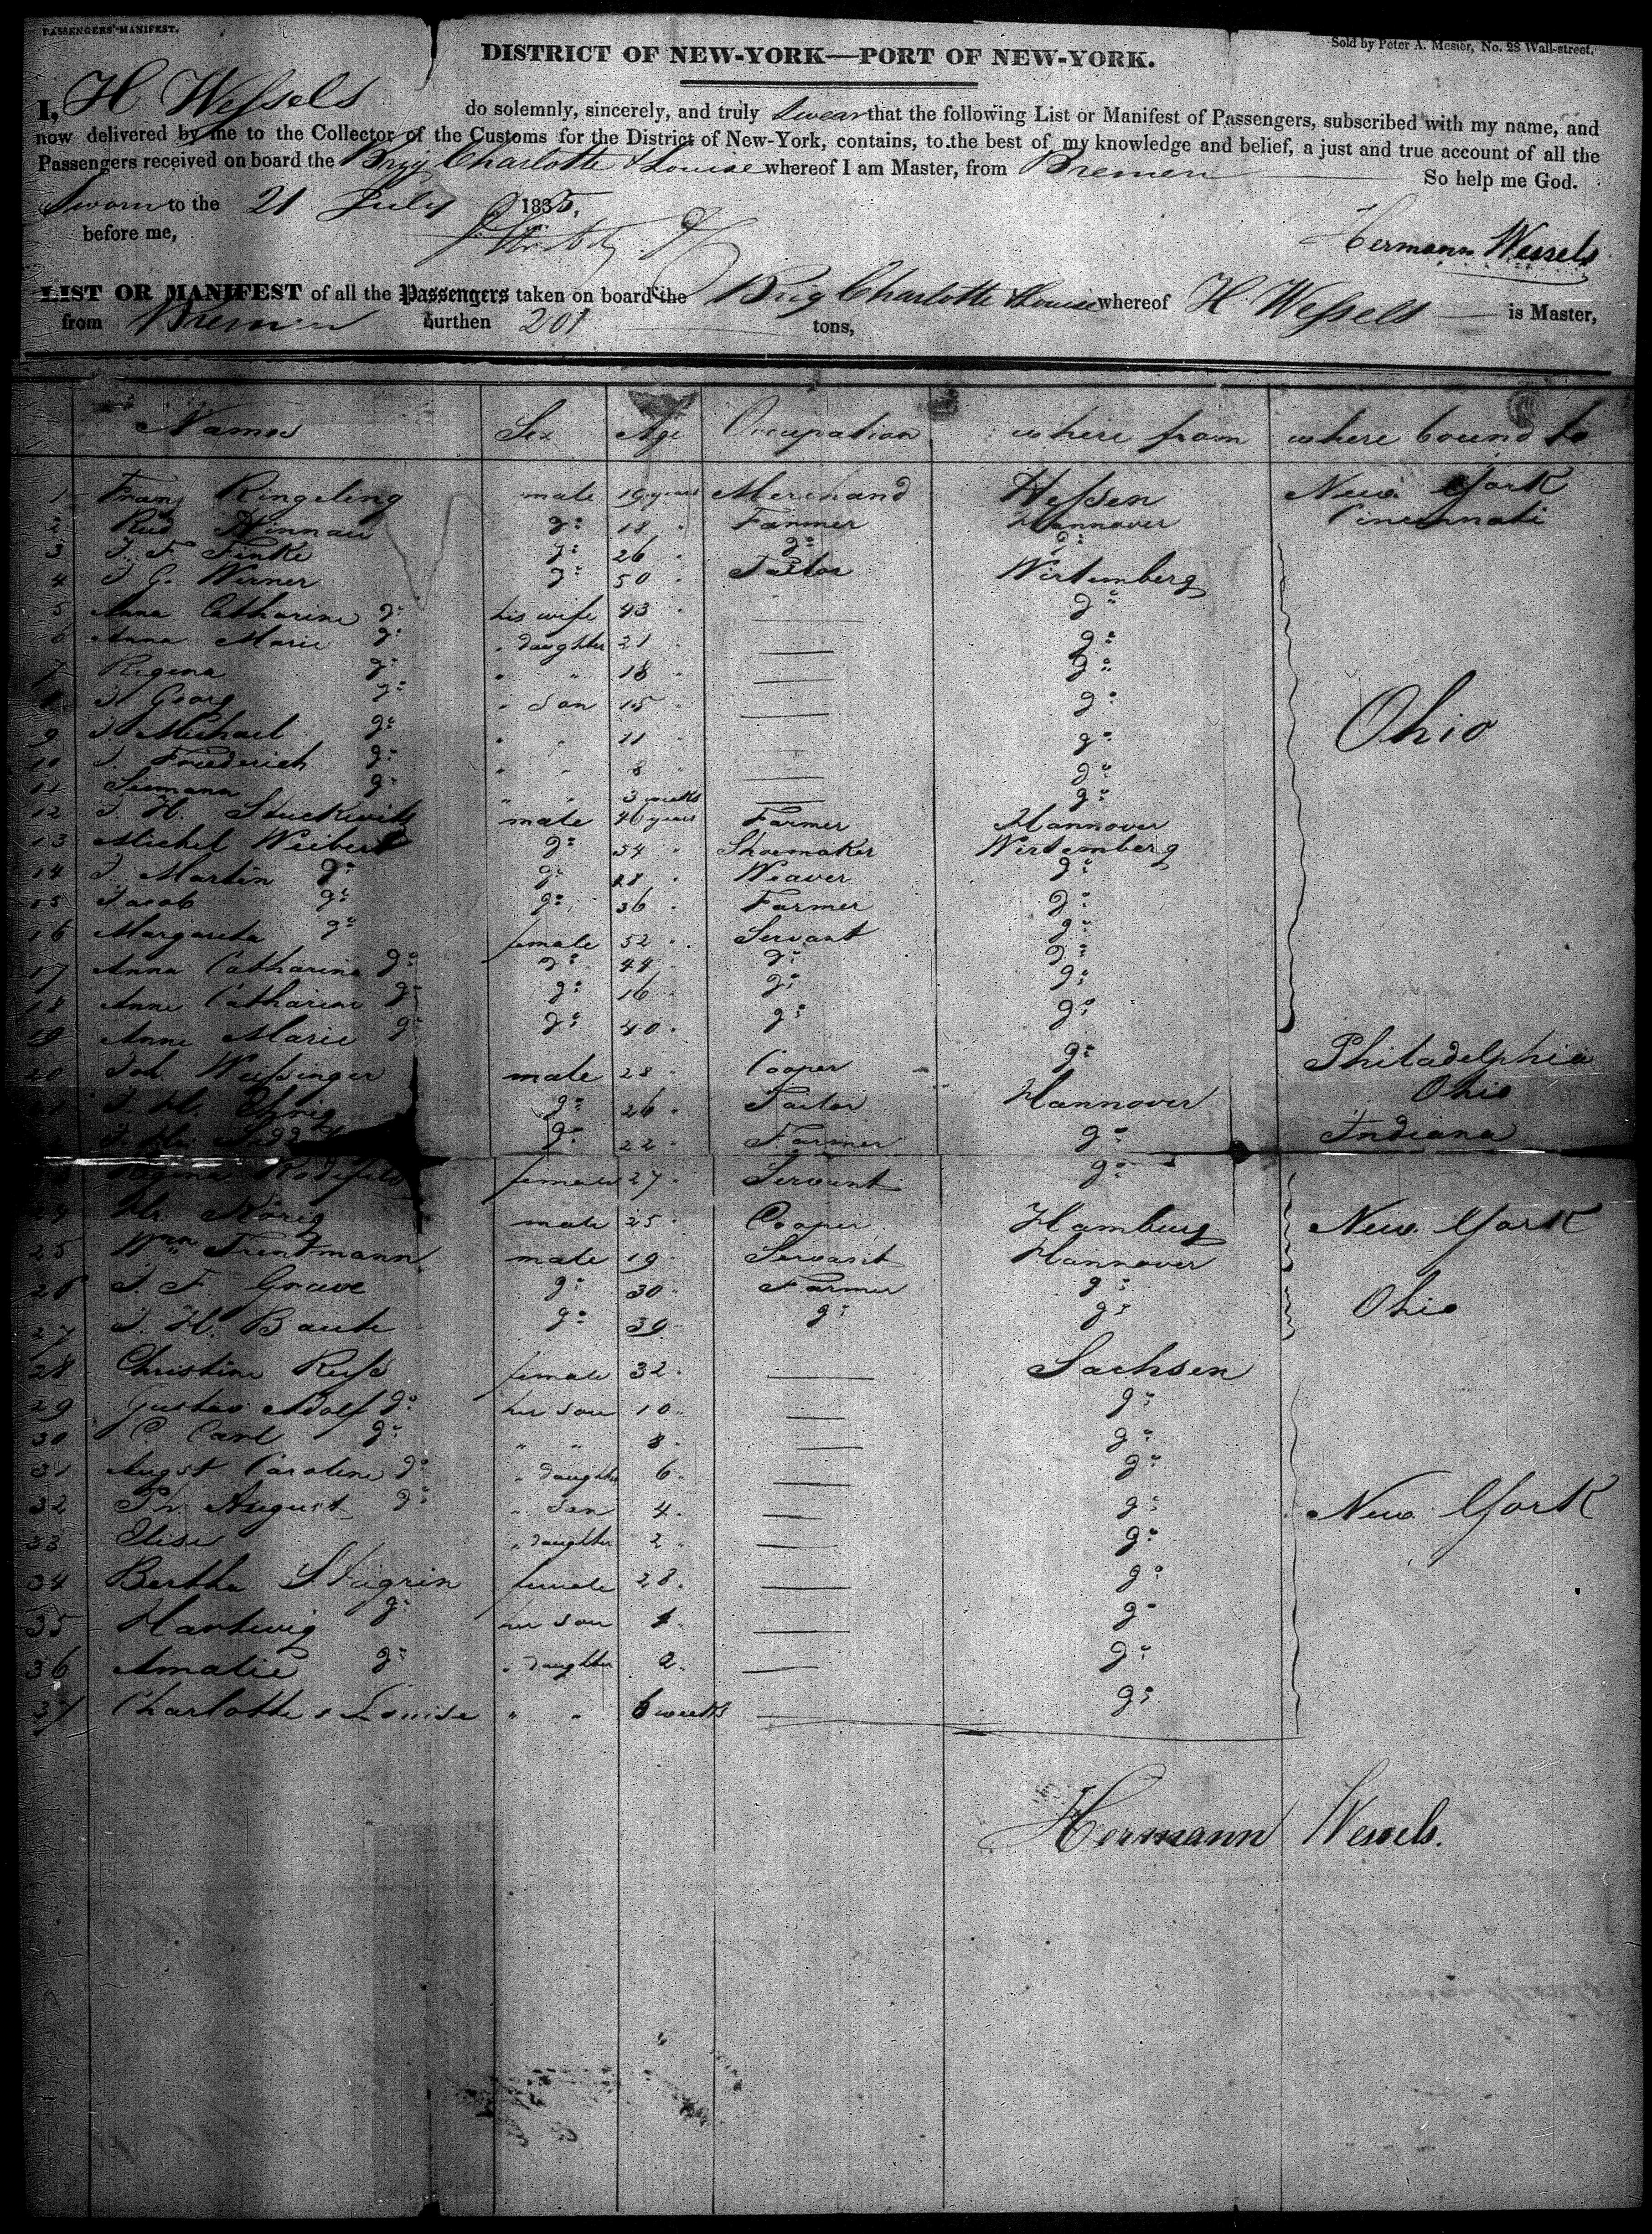 PASSENGERS' MANIFEST.
Sold by Peter A. Mesier, No. 28 Wall-street.
DISTRICT OF NEW-YORK—PORT OF NEW-YORK.
I, H Wessels do solemnly, sincerely, and truly swear that the following List or Manifest of Passengers, subscribed with my name, and
now delivered by me to the Collector of the Customs for the District of New-York, contains, to the best of my knowledge and belief, a just and true account of all the
Passengers received on board the Brig Charlotte & Louise whereof I am Master, from Bremen
So help me God.
Sworn to the 21 July 1835,
before me,
Hermann Wessels
LIST OR MANIFEST of all the Passengers taken on board the Brig Charlotte & Louise whereof H. Wessels is Master,
from Bremen burthen 201 tons,
Names Sex Age Occupation where from where bound to
1 Franz Ringeling male 19 years Merchand Hessen New York
2 Hinnau do 18 " Farmer Hannover Cincinnati
3 J. F. Finke do 26 " do do
4 J. G. Werner do 50 " Tailor Wirtemberg
5 Anna Catharine do his wife 43 " — do
6 Anna Marie do " daughter 21 " — do
7 Regina do " " 18 " — do
8 J. Georg do " Son 15 " — do
9 J. Michael do " " 11 " do Ohio
10 J. Friederich do " " 8 " — do
11 do " " 3 weeks — do
12 J. H. male years Farmer Hannover
13 Michel Weibert do 54 " Shoemaker Wirtemberg
14 J. Martin do do 28 " Weaver do
15 Jacob do do 36 " Farmer do
16 Margareta do female 52 " Servant do
17 Anna Catharina do do 44 " do do
18 Anne Catharine do do 16 " do do
19 Anne Marie do do 40 " do do
20 Joh. Weissinger male 28 " Cooper do Philadelphia
21 J. H. do 26 " Tailor Hannover Ohio
do 22 " Farmer do Indiana
female 27 " Servant do
24 Hr. König male 25 " Cooper Hamburg New York
25 Wm Trentmann male 19 " Servant Hannover
26 J. F. Grave do 30 " Farmer do Ohio
27 J. H. Baute do 39 " do do
28 Christine Reiss female 32 " — Sachsen
29 Gustav Adolf do her son 10 " — do
30 C. Carl do " " 8 " — do
31 August Caroline do " daughter 6 " — do
32 Fr. August do " Son 4 " — do New York
33 Elise " daughter 2 " — do
34 Bertha female 28 " — do
35 Hartwig do her son 4 " — do
36 Amalie do " daughter 2 " — do
37 Charlotte & Louise " " 6 weeks — do
Hermann Wessels.